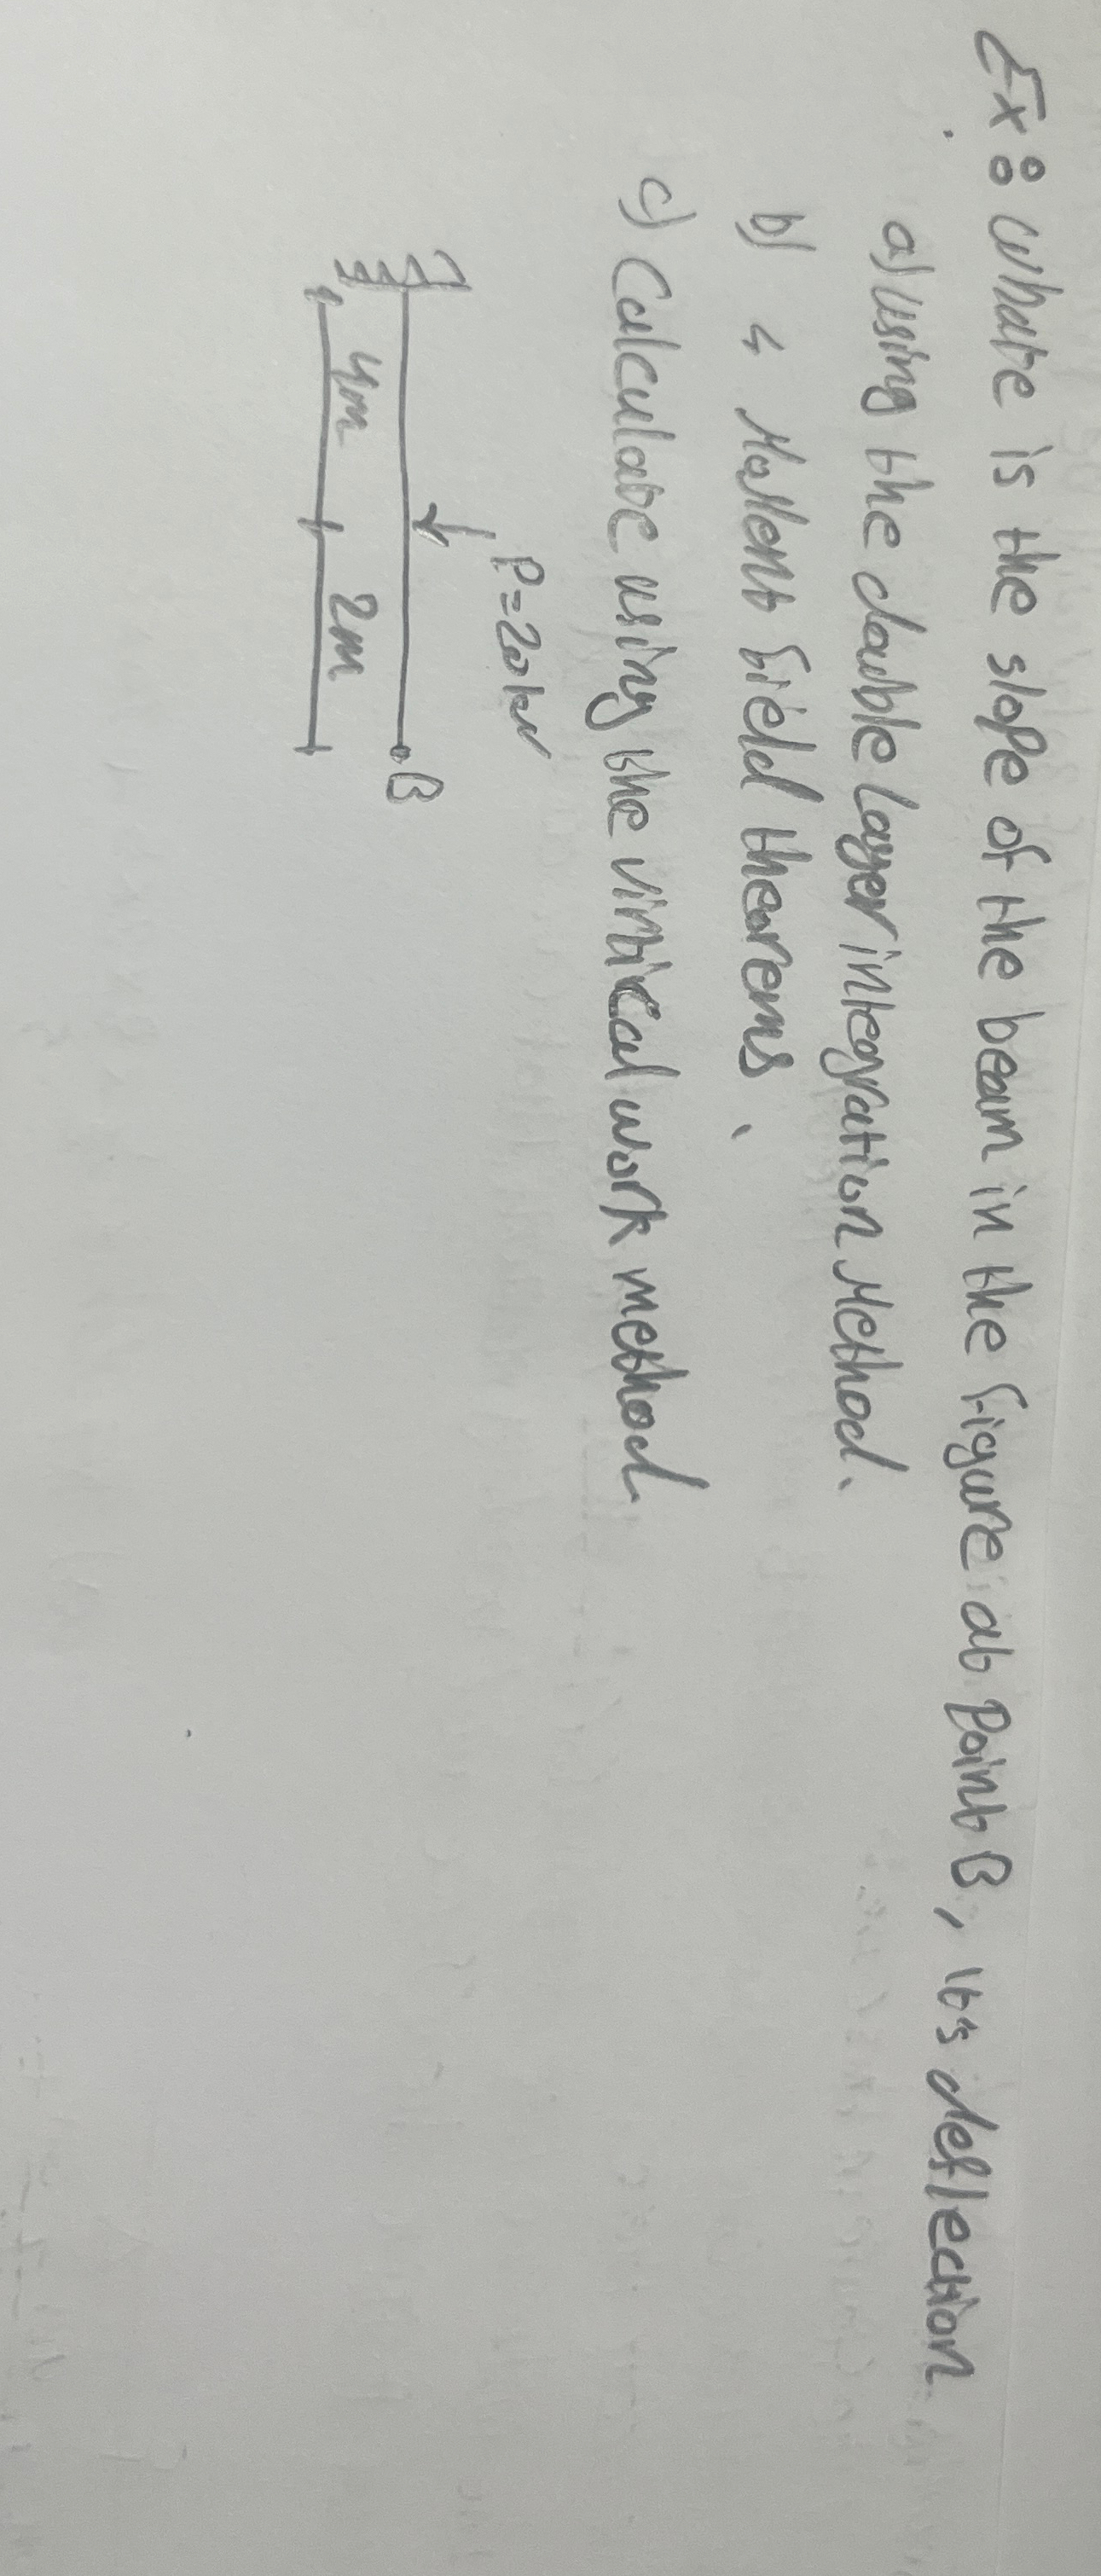 Ex: whate is the slope of the beam in the figure ab Point B, it's deflection
a) using the double layer integration Method.
b) " Moment field theorems.
c) Calculate using the virtical work method.
P=20kN
B
4m 2m